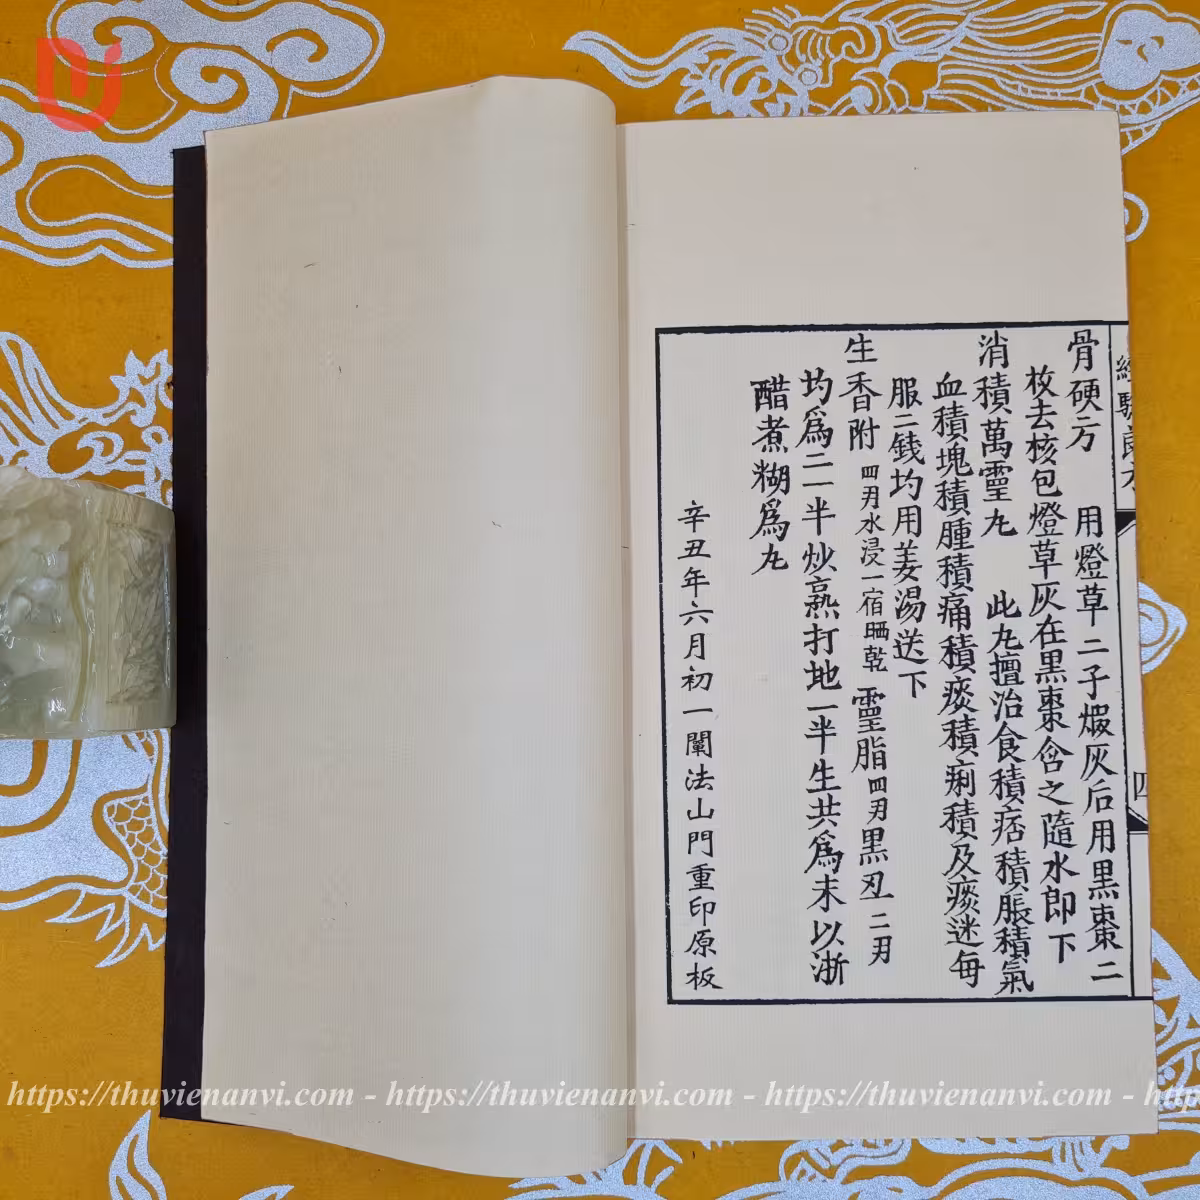 骨硬方　用燈草二子煅灰后用黑棗二
枚去核包燈草灰在黑棗含之隨水即下
消積萬靈九　此九擅治食積痞積脹積氣
血積塊積腫積痛積痰積痢積及痰迷每
服二錢均用姜湯送下
生香附四刄水浸一宿晒乾靈脂四刄黑丑二刄
均爲二一半炒熟打地一半生共爲末以浙
醋煮糊爲九
辛丑年六月初一闡法山門重印原板
四
https://thuvienanvi.com - https://thuvienanvi.com - https://thuvienanvi.com -